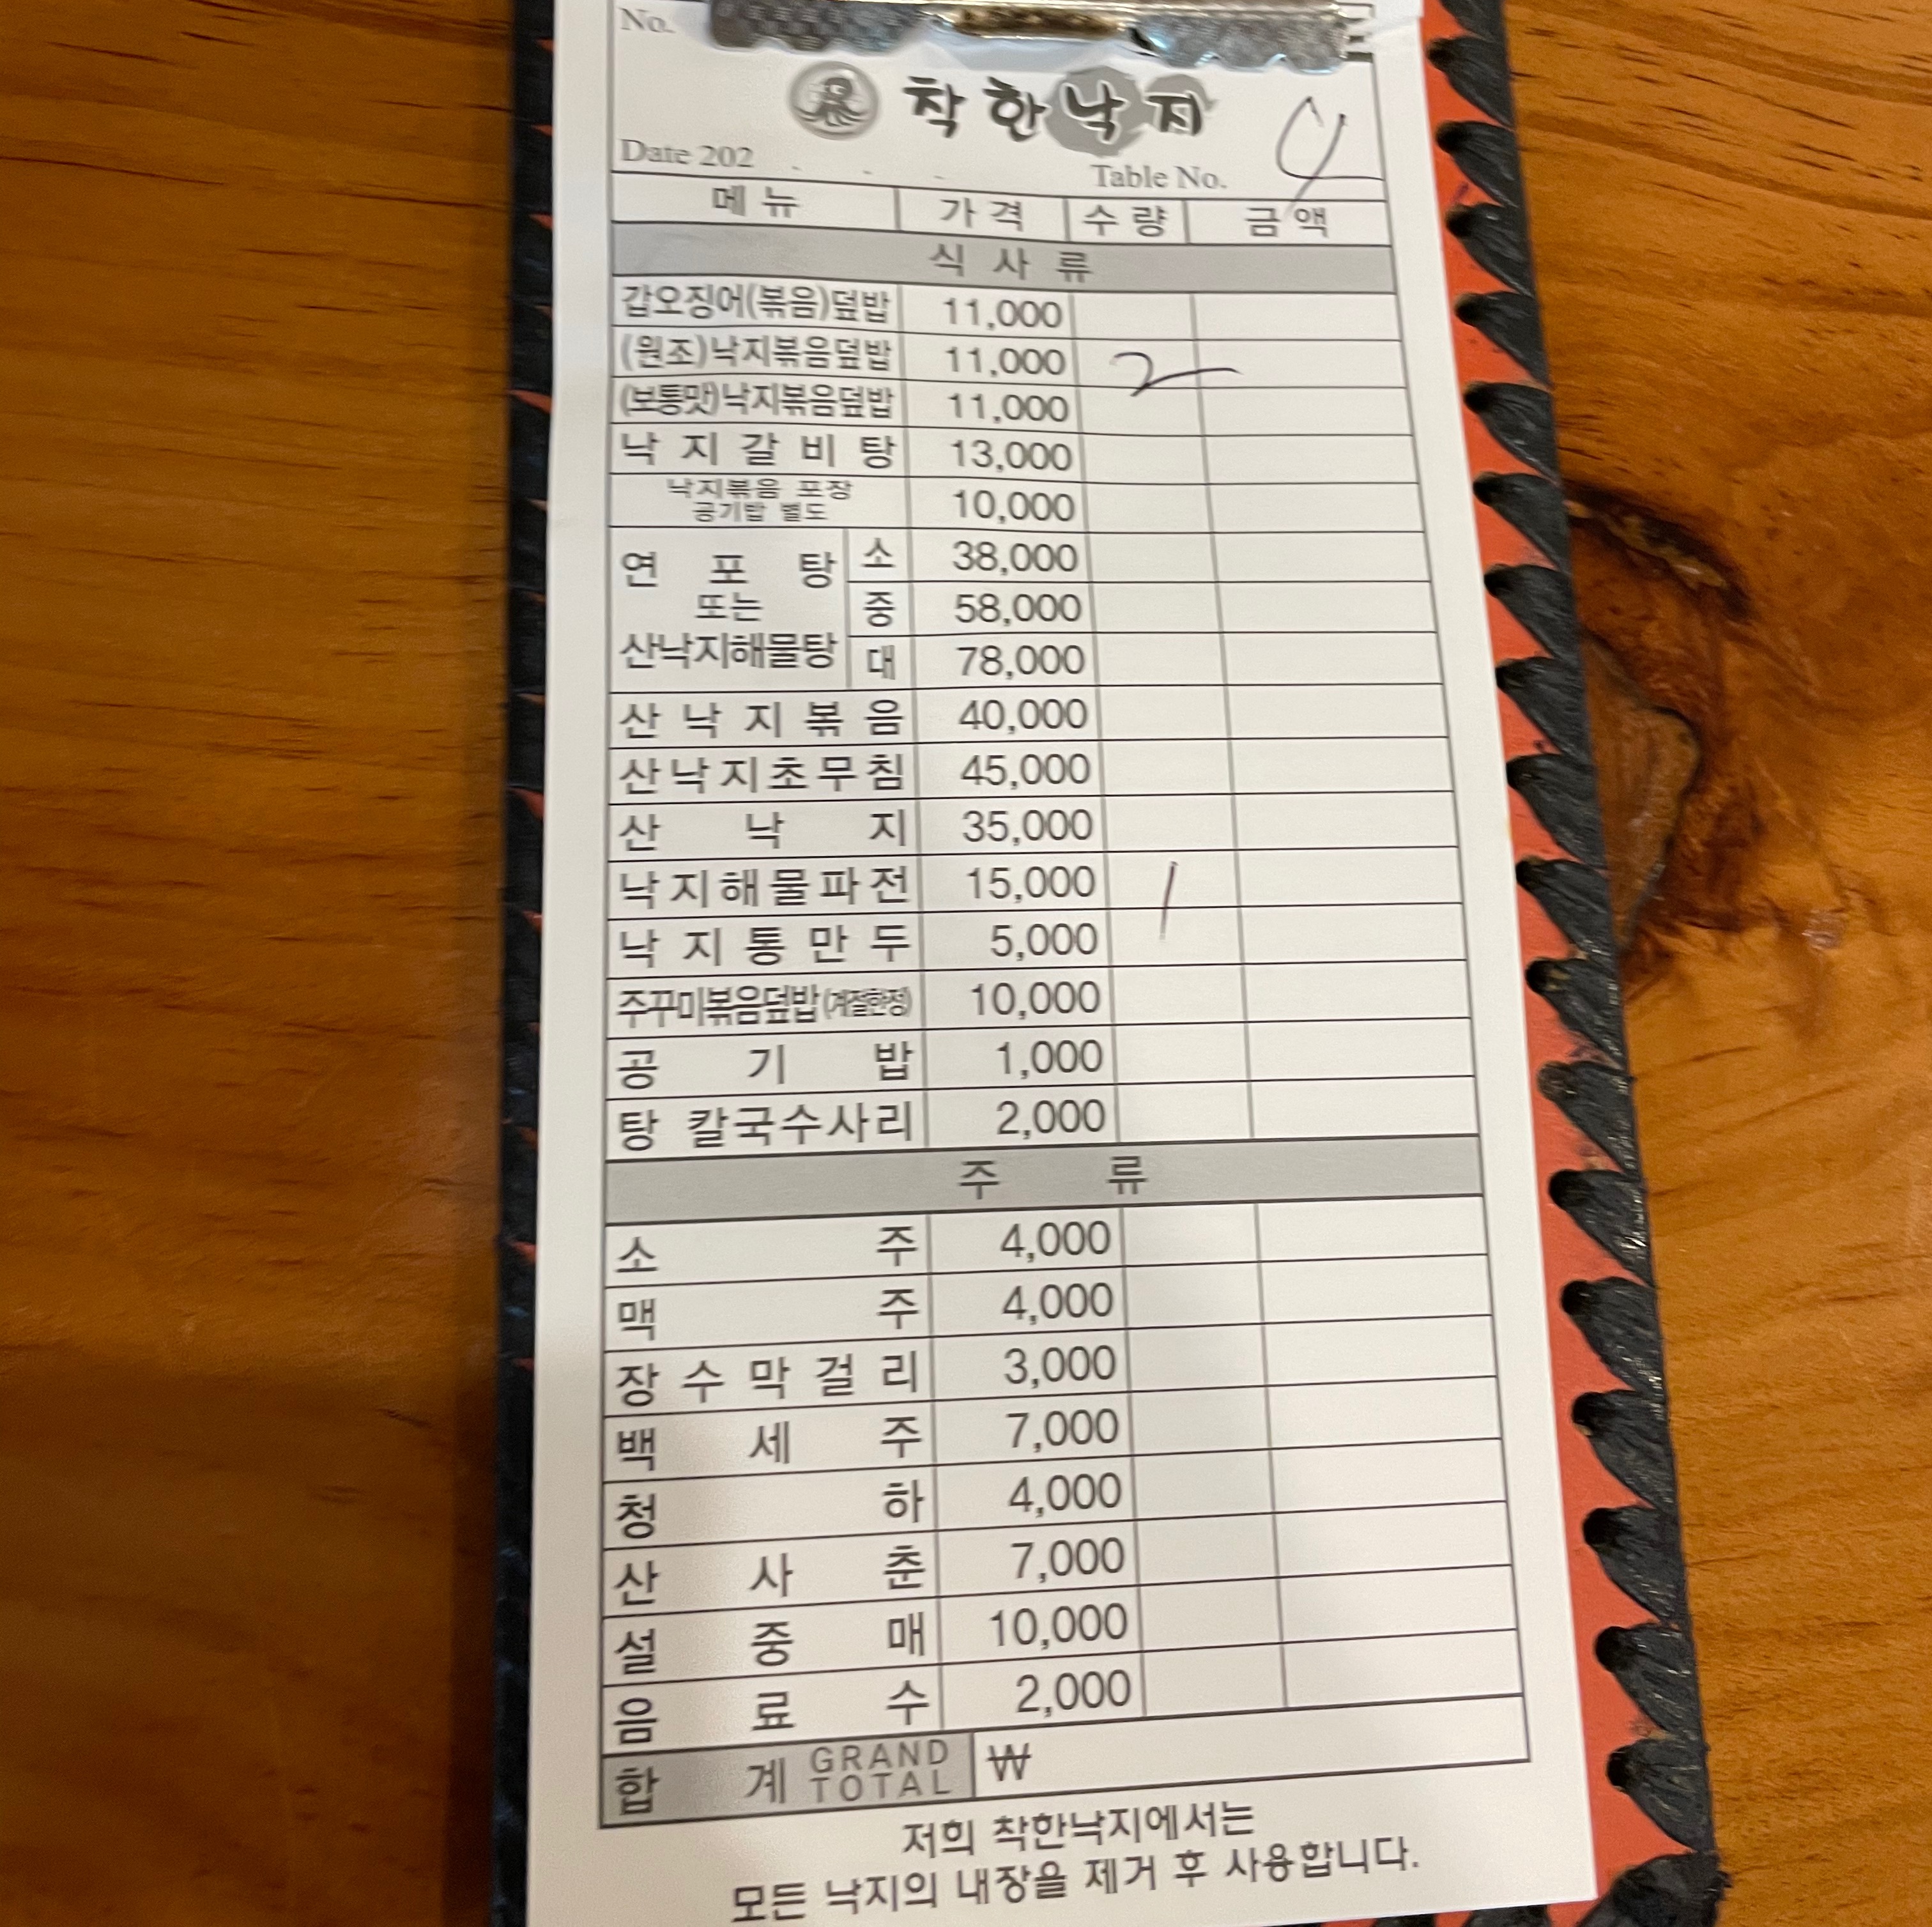 No.
착한낙지
Date 202 . . .
Table No. 4
메뉴 가격 수량 금액
식사류
갑오징어(볶음)덮밥 11,000
(원조)낙지볶음덮밥 11,000 2
(보통맛)낙지볶음덮밥 11,000
낙지갈비탕 13,000
낙지볶음 포장
공기밥 별도 10,000
연포탕
또는
산낙지해물탕
소 38,000
중 58,000
대 78,000
산낙지볶음 40,000
산낙지초무침 45,000
산낙지 35,000
낙지해물파전 15,000 1
낙지통만두 5,000
주꾸미볶음덮밥(계절한정) 10,000
공기밥 1,000
탕 칼국수사리 2,000
주류
소주 4,000
맥주 4,000
장수막걸리 3,000
백세주 7,000
청하 4,000
산사춘 7,000
설중매 10,000
음료수 2,000
합계 GRAND TOTAL ₩
저희 착한낙지에서는
모든 낙지의 내장을 제거 후 사용합니다.